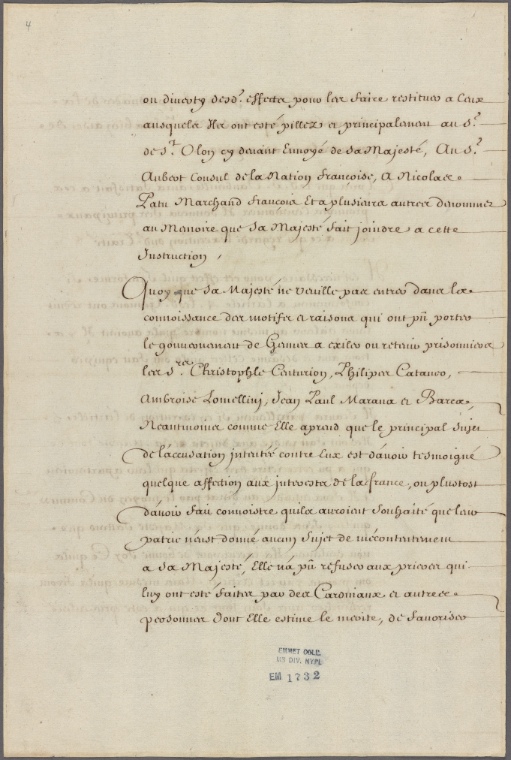 4
ou diverty desd. effects pour les faire restituer a Ceux
ausquels Ils ont esté pillez et principalement au Sr.
de St. Olon cy devant Envoyé de Sa Majesté, Au Sr.
Aubert Consul de la Nation Françoise, A Nicolas
Patu Marchand François Et a plusieurs autres denommez
au Memoire que Sa Majesté fait joindre a cette
Instruction,
Quoy que Sa Majesté ne veuille pas entrer dans la
connoissance des motifs et raisons qui ont pû porter
le gouvernement de Gennes a exiler ou retenir prisonniers
les Srs. Christophle Centurion, Philipes Cataneo,
Ambroise Lomellini, Jean Paul Marana et Barca,
Neantmoins comme Elle aprend que le principal Sujet
de l'accusation intentée contre Eux est d'avoir tesmoigné
quelque affection aux interests de la france, ou plustost
d'avoir fait connoistre quils auroient Souhaité que leur
patrie n'eust donné aucun Sujet de mécontentement
a Sa Majesté, Elle n'a pû refuser aux prieres qui
luy ont esté faites par des Cardinaux et autres
personnes dont Elle estime le merite, de favoriser
EMMET COLL.
MS DIV. NYPL
EM 1732